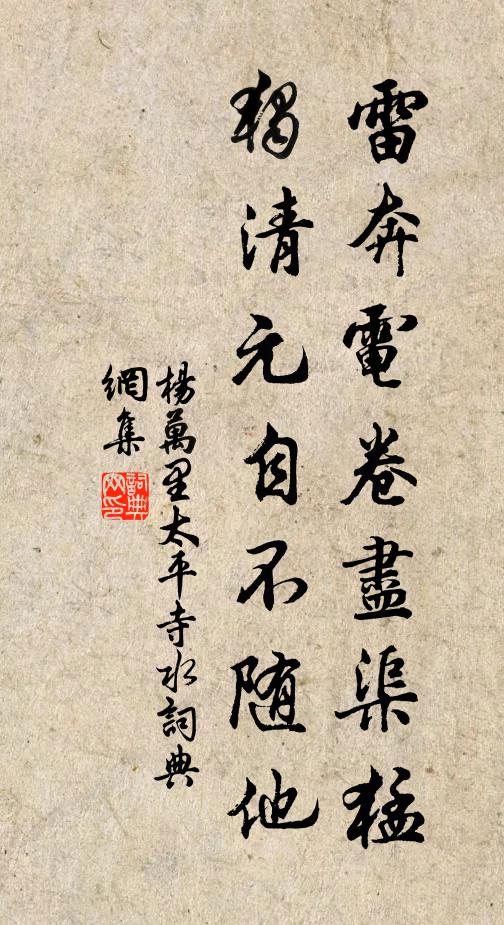 雷奔電卷盡渠猛
獨清元自不隨他
楊萬里太平寺水詞典
網集
詞典
网印